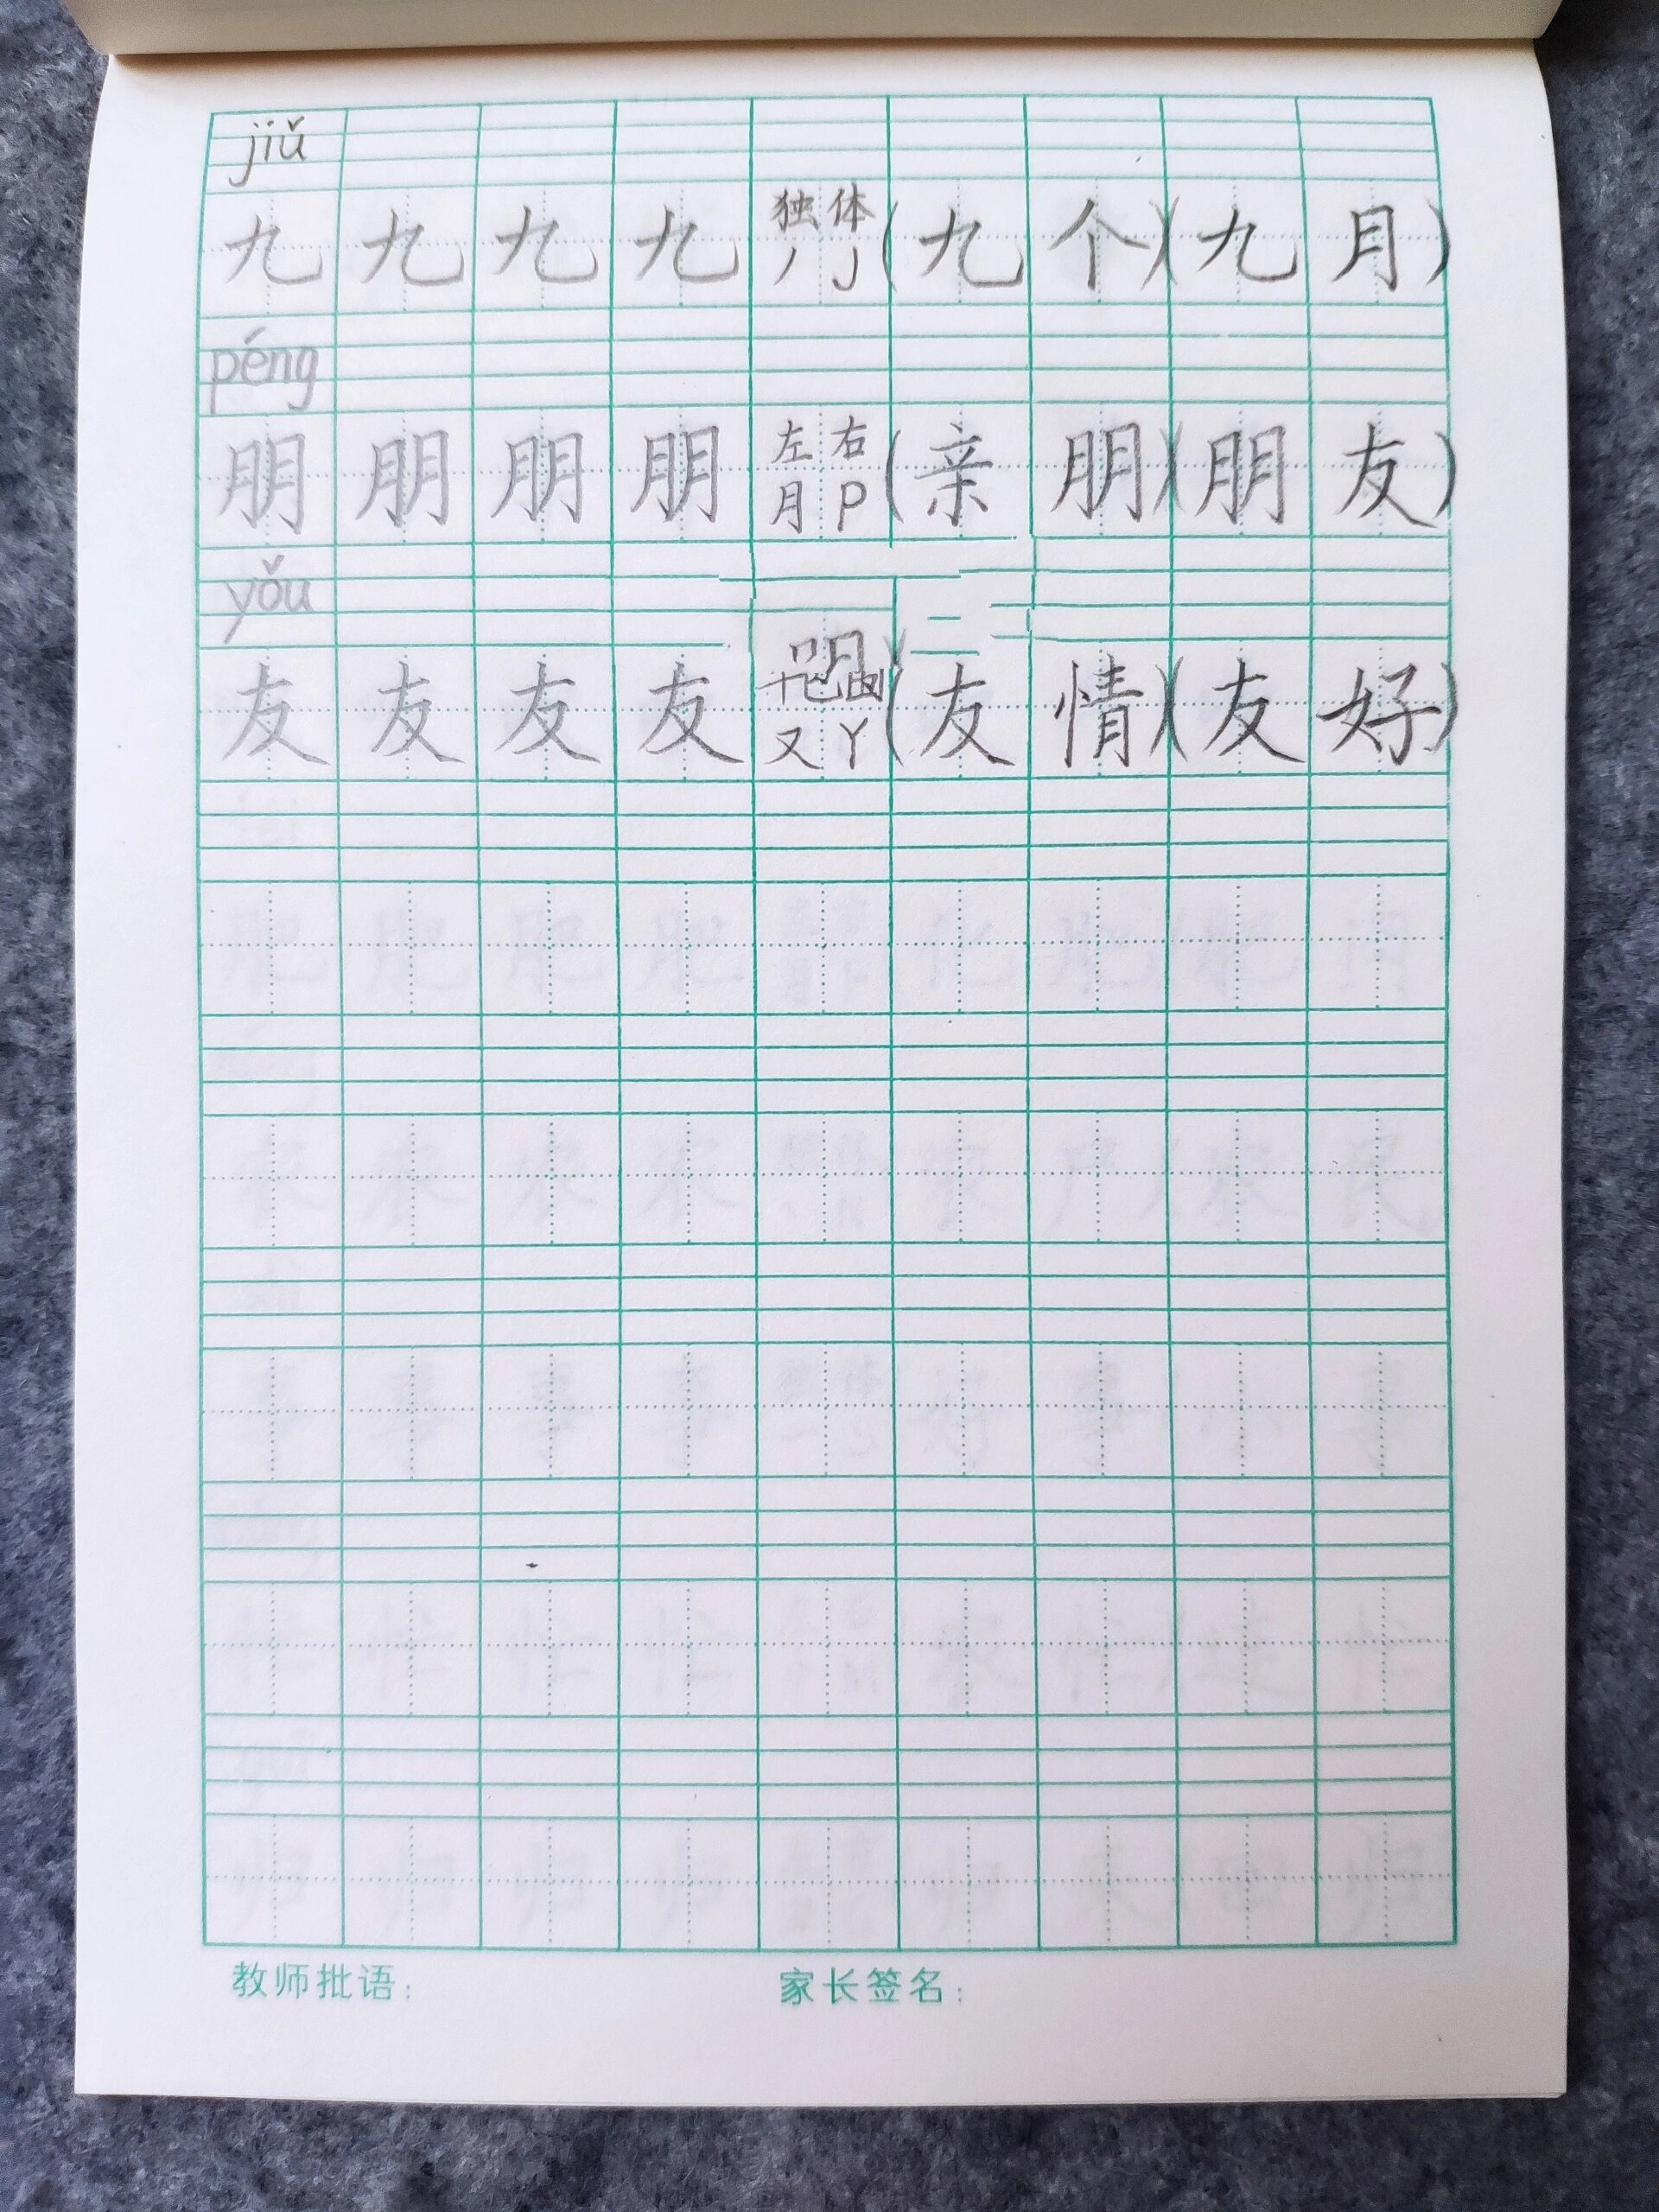 jiǔ
九 九 九 九 独体 丿 (九个)(九月)
péng
朋 朋 朋 朋 左右 月 P (亲朋)(朋友)
yǒu
友 友 友 友 又 Y (友情)(友好)
教师批语: 家长签名: